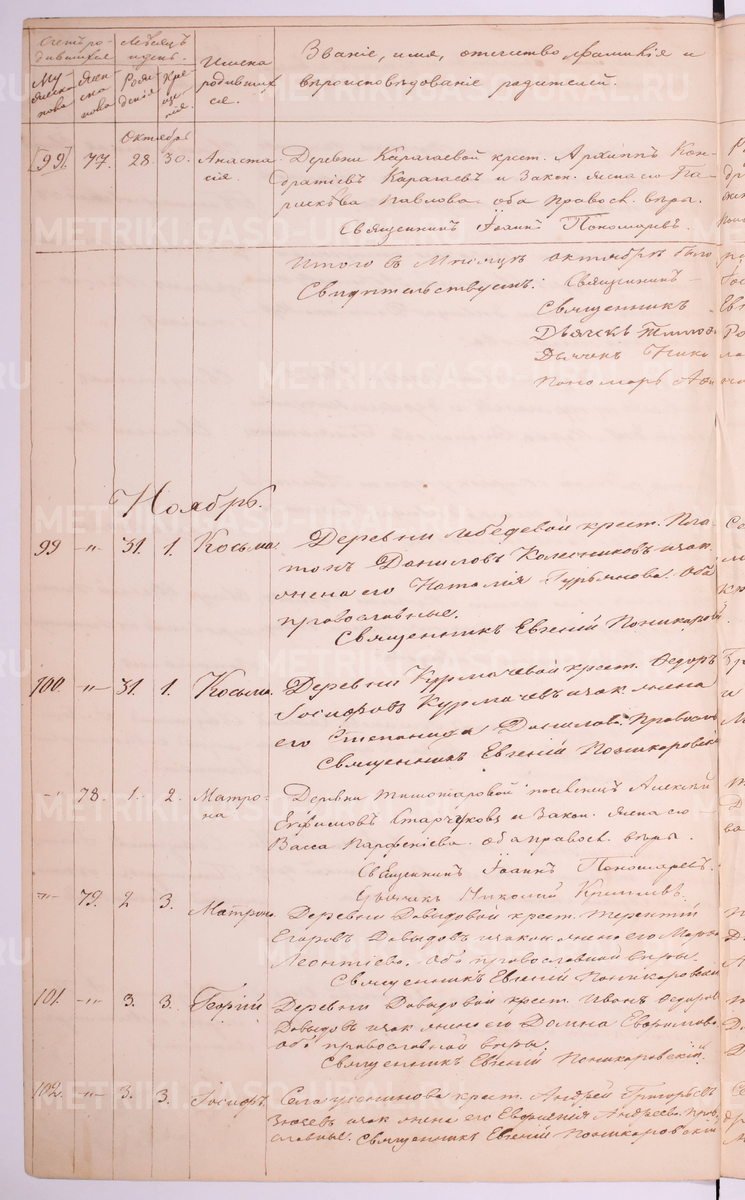 Счетъ родившихся
Мѣсяцъ и день.
Имена родившихся.
Званіе, имя, отчество, фамилія и
вѣроисповѣданіе родителей.
Мужеска пола
Женска пола
Рожденія
Крещенія.
Октябрь
[99]. 77. 28. 30. Анаста-
сія.
Деревни Карагаевой крест. Архиппъ Кон-
дратіевъ Карагаевъ и закон. жена его Па-
раскева Павлова оба православ. вѣры.
Священникъ Іоаннъ Пономаревъ.
Итого въ Мѣсяцѣ октябрѣ было
Свидѣтельствуемъ: Священникъ
Священникъ
Дьячекъ
Дьячекъ Нико
Пономарь
Ноябрь.
99 -"- 31. 1. Косьма.
Деревни Лебедевой крест. Пла-
тонъ Даниловъ Колесниковъ и зак.
жена его Наталія Гурьянова. Оба
православные.
Священникъ Евгеній Поникаровскій
100. -"- 31. 1. Косьма.
Деревни Курмачевой крест. Ѳедоръ
Іосифовъ Курмачевъ и зак. жена
его Степанида Данилова. Правосл.
Священникъ Евгеній Поникаровскій
-"- 78. 1. 2. Матро-
на
Деревни поселенецъ Алексѣй
Ефимовъ и закон. жена его
Васса Парфеніева. Оба правосл. вѣры.
Священникъ Іоаннъ Пономаревъ.
Дьячекъ Николай
-"- 79. 2 3. Матрона.
Деревни Давыдовой крест. Терентій
Егоровъ Давыдовъ и закон. жена его Марѳа
Леонтіева. Оба православной вѣры.
Священникъ Евгеній Поникаровскій
101. -"- 3. 3. Георгій
Деревни Давыдовой крест. Иванъ Ѳедоровъ
Давыдовъ и зак. жена его Домна Евфимова
оба православной вѣры.
Священникъ Евгеній Поникаровскій.
102. -"- 3. 3. Іосифъ.
Села крест. Андрей Григорьевъ
и зак. жена его Евфимія Андреева. Прав-
славные. Священникъ Евгеній Поникаровскій
METRIKI.GASO-URAL.RU